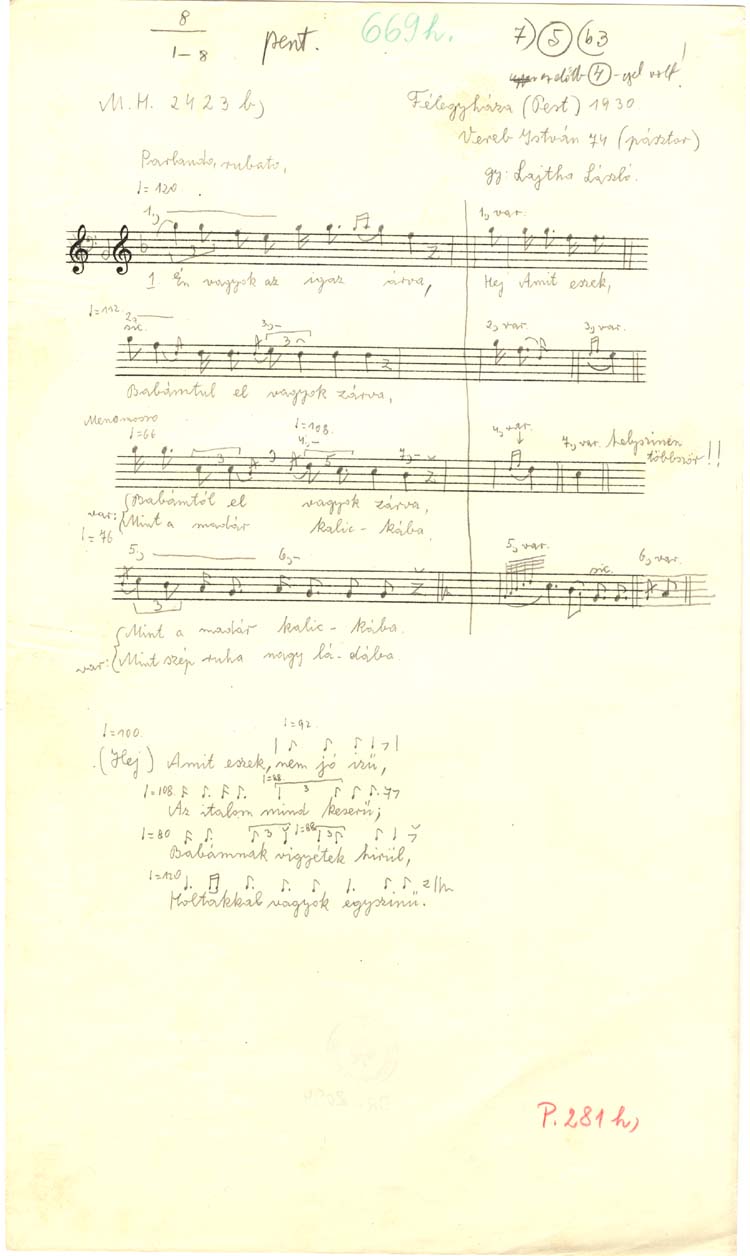 8
1-8
pent.
669h.
7) 5 b3
ezelőtt 4-gyel volt!
M.H. 2423 b)
Félegyháza (Pest) 1930
Vereb István 74 (pásztor)
gy: Lajtha László.
Parlando, rubato,
= 120
1,
1, var.
1 Én vagyok az igaz árva,
Hej Amit eszek,
= 112
2,
sic.
3,-
3
2, var.
3, var.
Babámtul el vagyok zárva,
Meno mosso
= 66
= 108.
4,-
3
3
5
7,-
4, var.
7, var. helyszinen
többször!!
Babámtól el vagyok zárva,
var: Mint a madár kalic-kába
= 76
5,
6,-
3
5, var.
sic.
6, var.
Mint a madár kalic-kába.
var: Mint szép ruha nagy lá-dába.
= 100.
= 92.
(Hej) Amit eszek, nem jó izű,
= 108.
= 88.
3
Az italom mind keserű;
= 80
3
= 88
3
Babámnak vigyétek hirül,
= 120
Holtakkal vagyok egyszinű.
P. 281 h)